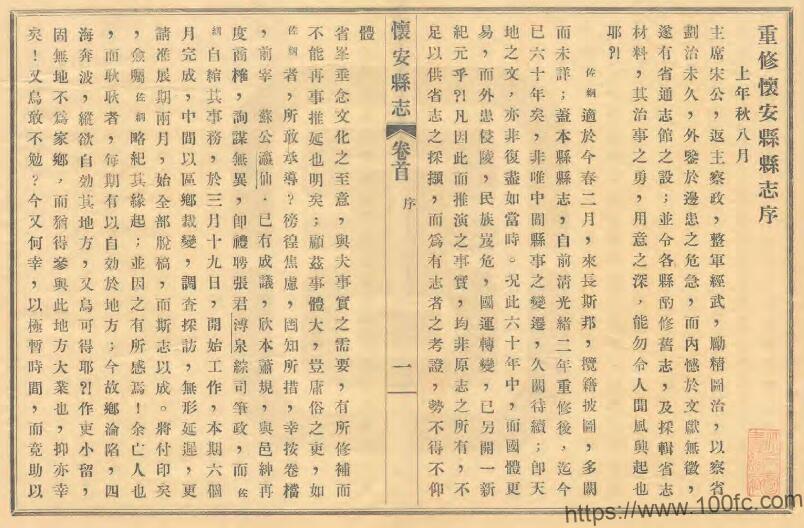 重修懷安縣縣志序
上年秋八月
主席宋公，返主察政，整軍經武，勵精圖治，以察省
劃治未久，外鑒於邊患之危急，而內憾於文獻無徵，
遂有省通志館之設；並令各縣酌修舊志，及採輯省志
材料，其治事之勇，用意之深，能勿令人聞風興起也
耶？！
佐綱適於今春二月，來長斯邦，攬籍披圖，多闕
而未詳；蓋本縣縣志，自前清光緒二年重修後，迄今
已六十年矣，非唯中間縣事之變遷，久闕待續；卽天
地之文，亦非復盡如當時。況此六十年中，而國體更
易，而外患侵陵，民族岌危，國運轉變，已另開一新
紀元乎？！凡因此而推演之事實，均非原志之所有，不
足以供省志之採擷，而爲有志者之考證，勢不得不仰
懷安縣志 卷首 序 一
體
省峯垂念文化之至意，與夫事實之需要，有所修補而
不能再事推延也明矣；顧茲事體大，豈庸俗之吏，如
佐綱者，所敢承導？徬徨焦慮，罔知所措，幸按卷檔
，前宰 蘇公瀛仙．已有成議，欣本蕭規，與邑紳再
度商榷，詢謀無異，卽禮聘張君溥泉綜司筆政，而佐
綱自綰其事務，於三月十九日，開始工作，本期六個
月完成，中間以區鄉裁變，調查採訪，無形延遲，更
請准展期兩月，始全部脫稿，而斯志以成。將付印矣
，僉囑佐綱略紀其緣起；並因之有所感焉！余亡人也
，而耿耿者，每期有以自効於地方；今故鄉淪陷，四
海奔波，縱欲自効其地方，又烏可得耶？！作吏小留，
固無地不爲家鄉，而猶得參與此地方大業也，抑亦幸
矣！又烏敢不勉？今又何幸，以極暫時間，而竟助以
https://www.100fc.com